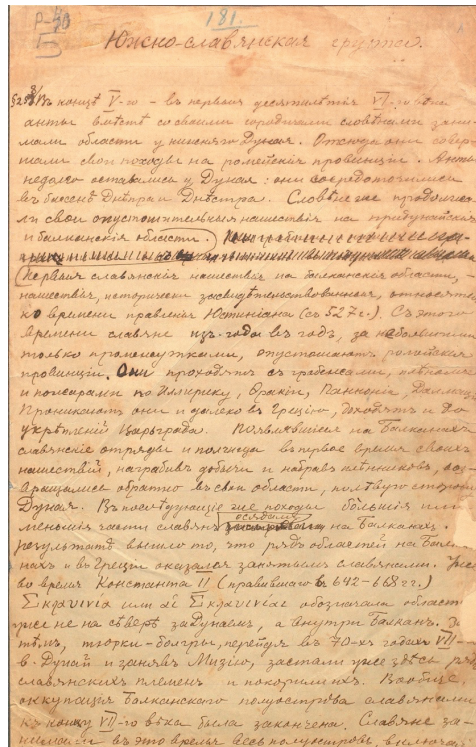 Р-30
Б
181.
Южно-славянская группа.
§25 Въ концѣ V-го – въ первыя десятилѣтія VI-го вѣка
анты вмѣстѣ со своими сородичами словѣнами зани-
мали области у нижняго Дуная. Отсюда они совер-
шали свои походы на ромейскія провинціи. Анты
недолго оставались у Дуная: они сосредоточились
въ бассейнѣ Днѣпра и Днѣстра. Словѣне же продолжа-
ли свои опустошительныя нашествія на придунайскія
и балканскія области.
Первыя славянскія нашествія на балканскія области,
нашествія, исторически засвидѣтельствованныя, относятся
ко времени правленія Юстиніана (съ 527 г.). Съ этого
времени славяне изъ года въ годъ, за небольшими
только промежутками, опустошаютъ ромейскія
провинціи. Они проходятъ съ грабежами, плѣненіями
и пожарами по Иллирику, Ѳракіи, Панноніи, Далмаціи.
Проникаютъ они и далеко въ Грецію, доходятъ и до
укрѣпленій Царьграда. Появлявшіеся на Балканахъ
славянскіе отряды и полчища въ первое время своихъ
нашествій, награбивъ добычи и набравъ плѣнниковъ, воз-
вращались обратно въ свои области, по лѣвую сторону
Дуная. Въ послѣдующіе же походы большія или
меньшія части славянъ осѣдали на Балканахъ. Въ
результатѣ вышло то, что рядъ областей на Балка-
нахъ и въ Греціи оказался занятымъ славянами. Уже
во время Константа II (правившаго въ 642–668 гг.)
Σκλαυινία или αἱ Σκλαυινίαι обозначала область
уже не на сѣверѣ за Дунаемъ, а внутри Балканъ. За-
тѣмъ, тюрки-болгры, перейдя въ 70-хъ годахъ VII-го
в. Дунай и занявъ Мизію, застали уже здѣсь рядъ
славянскихъ племенъ и покорили ихъ. Вообще,
оккупація Балканскаго полуострова славянами
къ концу VII-го вѣка была закончена. Славяне за-
нимали въ это время весь полуостровъ, включая